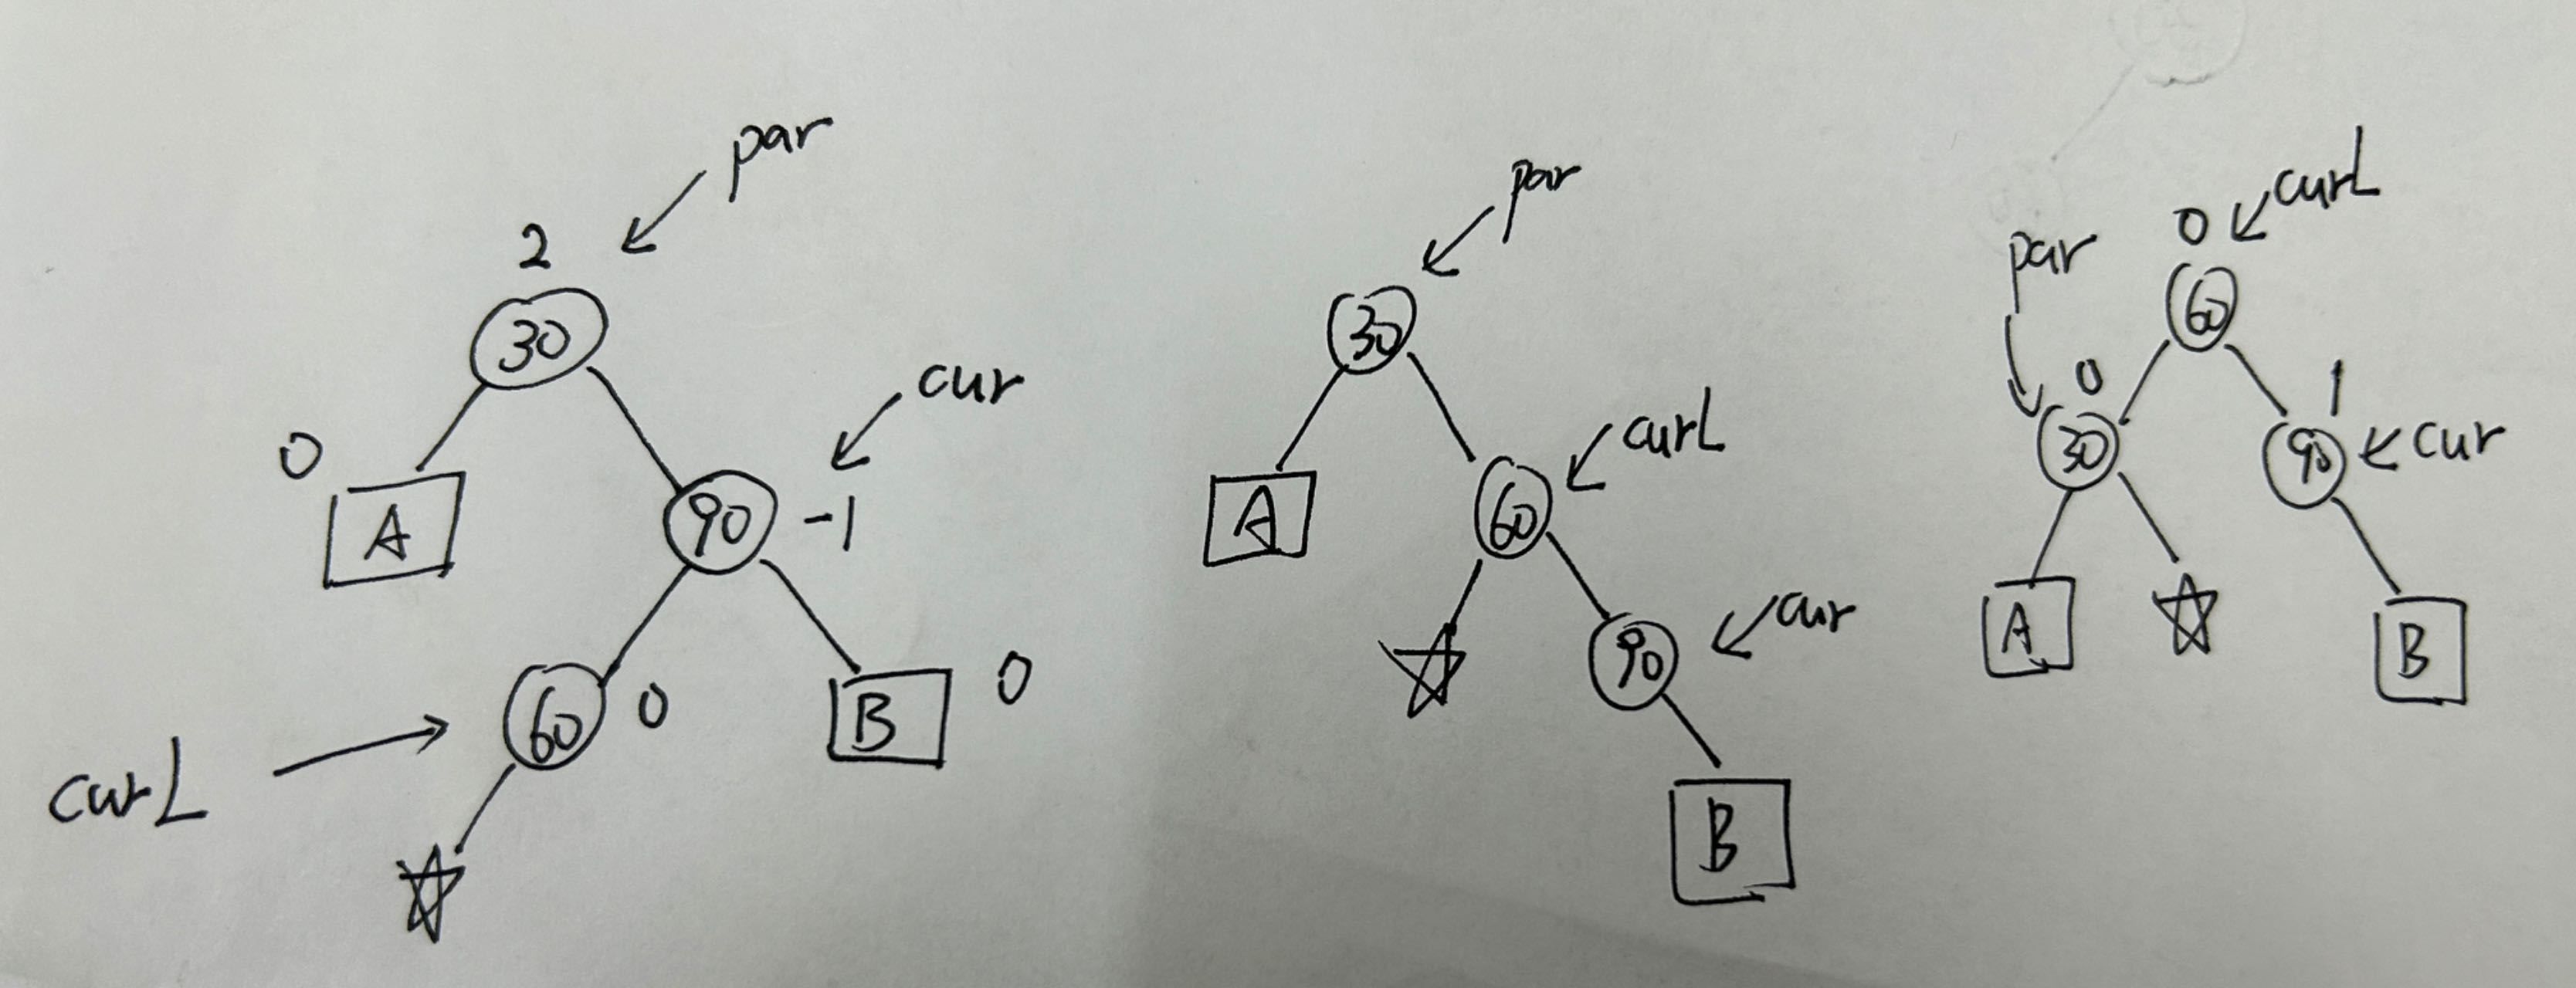 par
2
30
cur
0
A
90
-1
curL
60
0
B
0
par
30
curL
A
60
cur
90
B
curL
0
par
60
0
1
30
90
cur
A
B